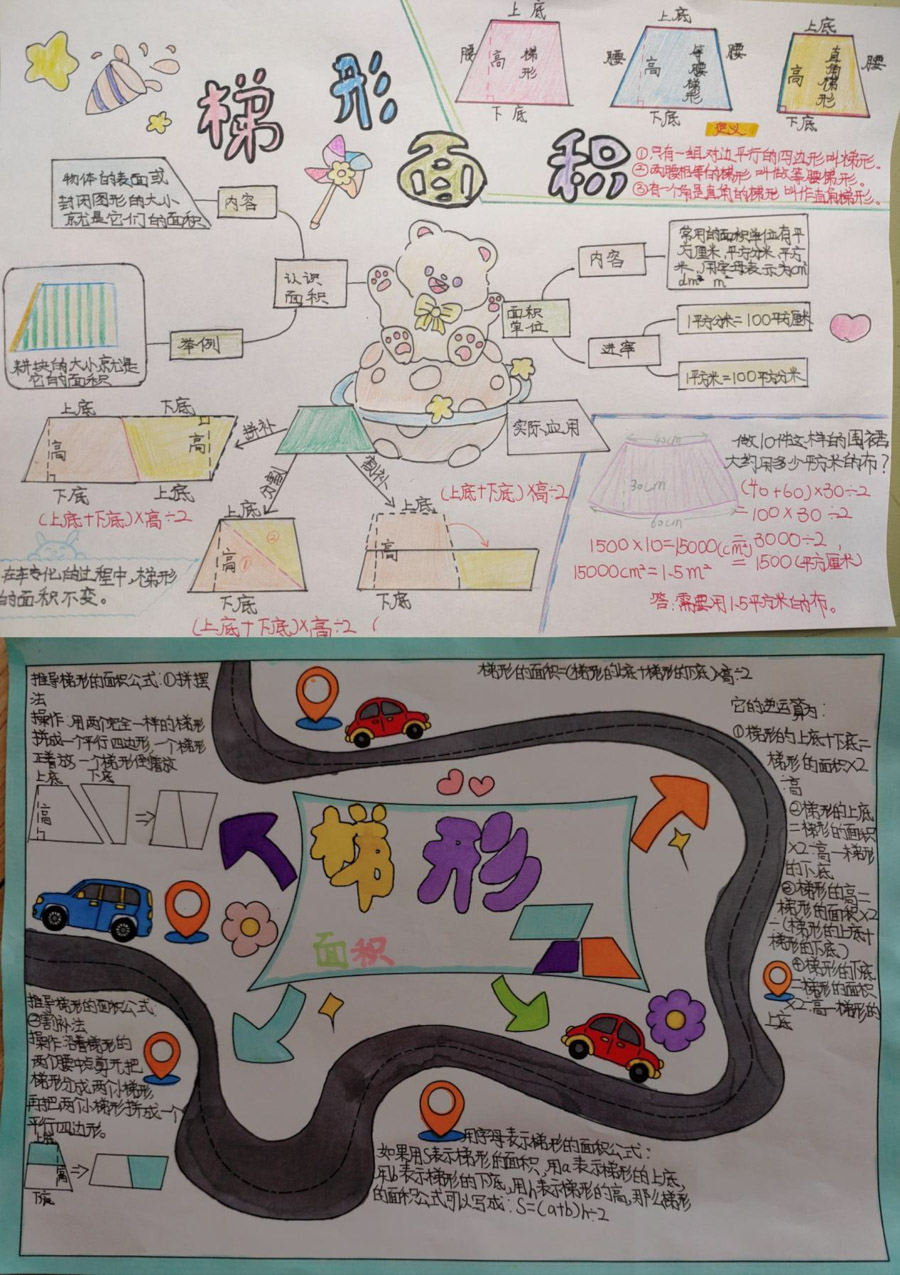 梯形
面积
上底
腰
高
梯形
下底
上底
腰
高
等腰梯形
腰
下底
上底
高
直角梯形
腰
下底
定义
①只有一组对边平行的四边形叫梯形.
②两腰相等的梯形叫做等腰梯形。
③有一个角是直角的梯形叫作直角梯形。
物体的表面或
封闭图形的大小
就是它们的面积
内容
认识
面积
举例
耕块的大小就是
它的面积
面积
单位
内容
常用的面积单位有平
方厘米,平方分米,平方
米,用字母表示为cm²
dm² m²
进率
1平方分米=100平方厘米
1平方米=100平方分米
上底
下底
高
高
下底
上底
拼补
(上底+下底)×高÷2
分割
上底
高
①
②
下底
(上底+下底)×高÷2
割补
上底
高
下底
(上底+下底)×高÷2
在转化的过程中,梯形
的面积不变。
实际应用
40cm
30cm
60cm
做10件这样的围裙
大约用多少平方米的布?
(40+60)×30÷2
=100×30÷2
=3000÷2
=1500(平方厘米)
1500×10=15000(cm²)
15000cm²=1.5m²
答:需要用1.5平方米的布。
推导梯形的面积公式:①拼摆
法
操作:用两个完全一样的梯形
拼成一个平行四边形,一个梯形
正着放,一个梯形倒着放
上底
下底
高
梯形的面积=(梯形的上底+梯形的下底)×高÷2
它的逆运算为:
①梯形的上底+下底=
梯形的面积×2
÷高
②梯形的上底
=梯形的面积
×2÷高-梯形
的下底
③梯形的高=
梯形的面积×2
÷(梯形的上底+
梯形的下底)
④梯形的下底
=梯形的面积
×2÷高-梯形的
上底
梯形
面积
推导梯形的面积公式:
②割补法
操作:沿着梯形的
两个腰中点剪开,把
梯形分成两个小梯形,
再把两个小梯形拼成一个
平行四边形。
上底
高
下底
用字母表示梯形的面积公式:
如果用S表示梯形的面积,用a表示梯形的上底,
用b表示梯形的下底,用h表示梯形的高,那么梯形
的面积公式可以写成:S=(a+b)h÷2